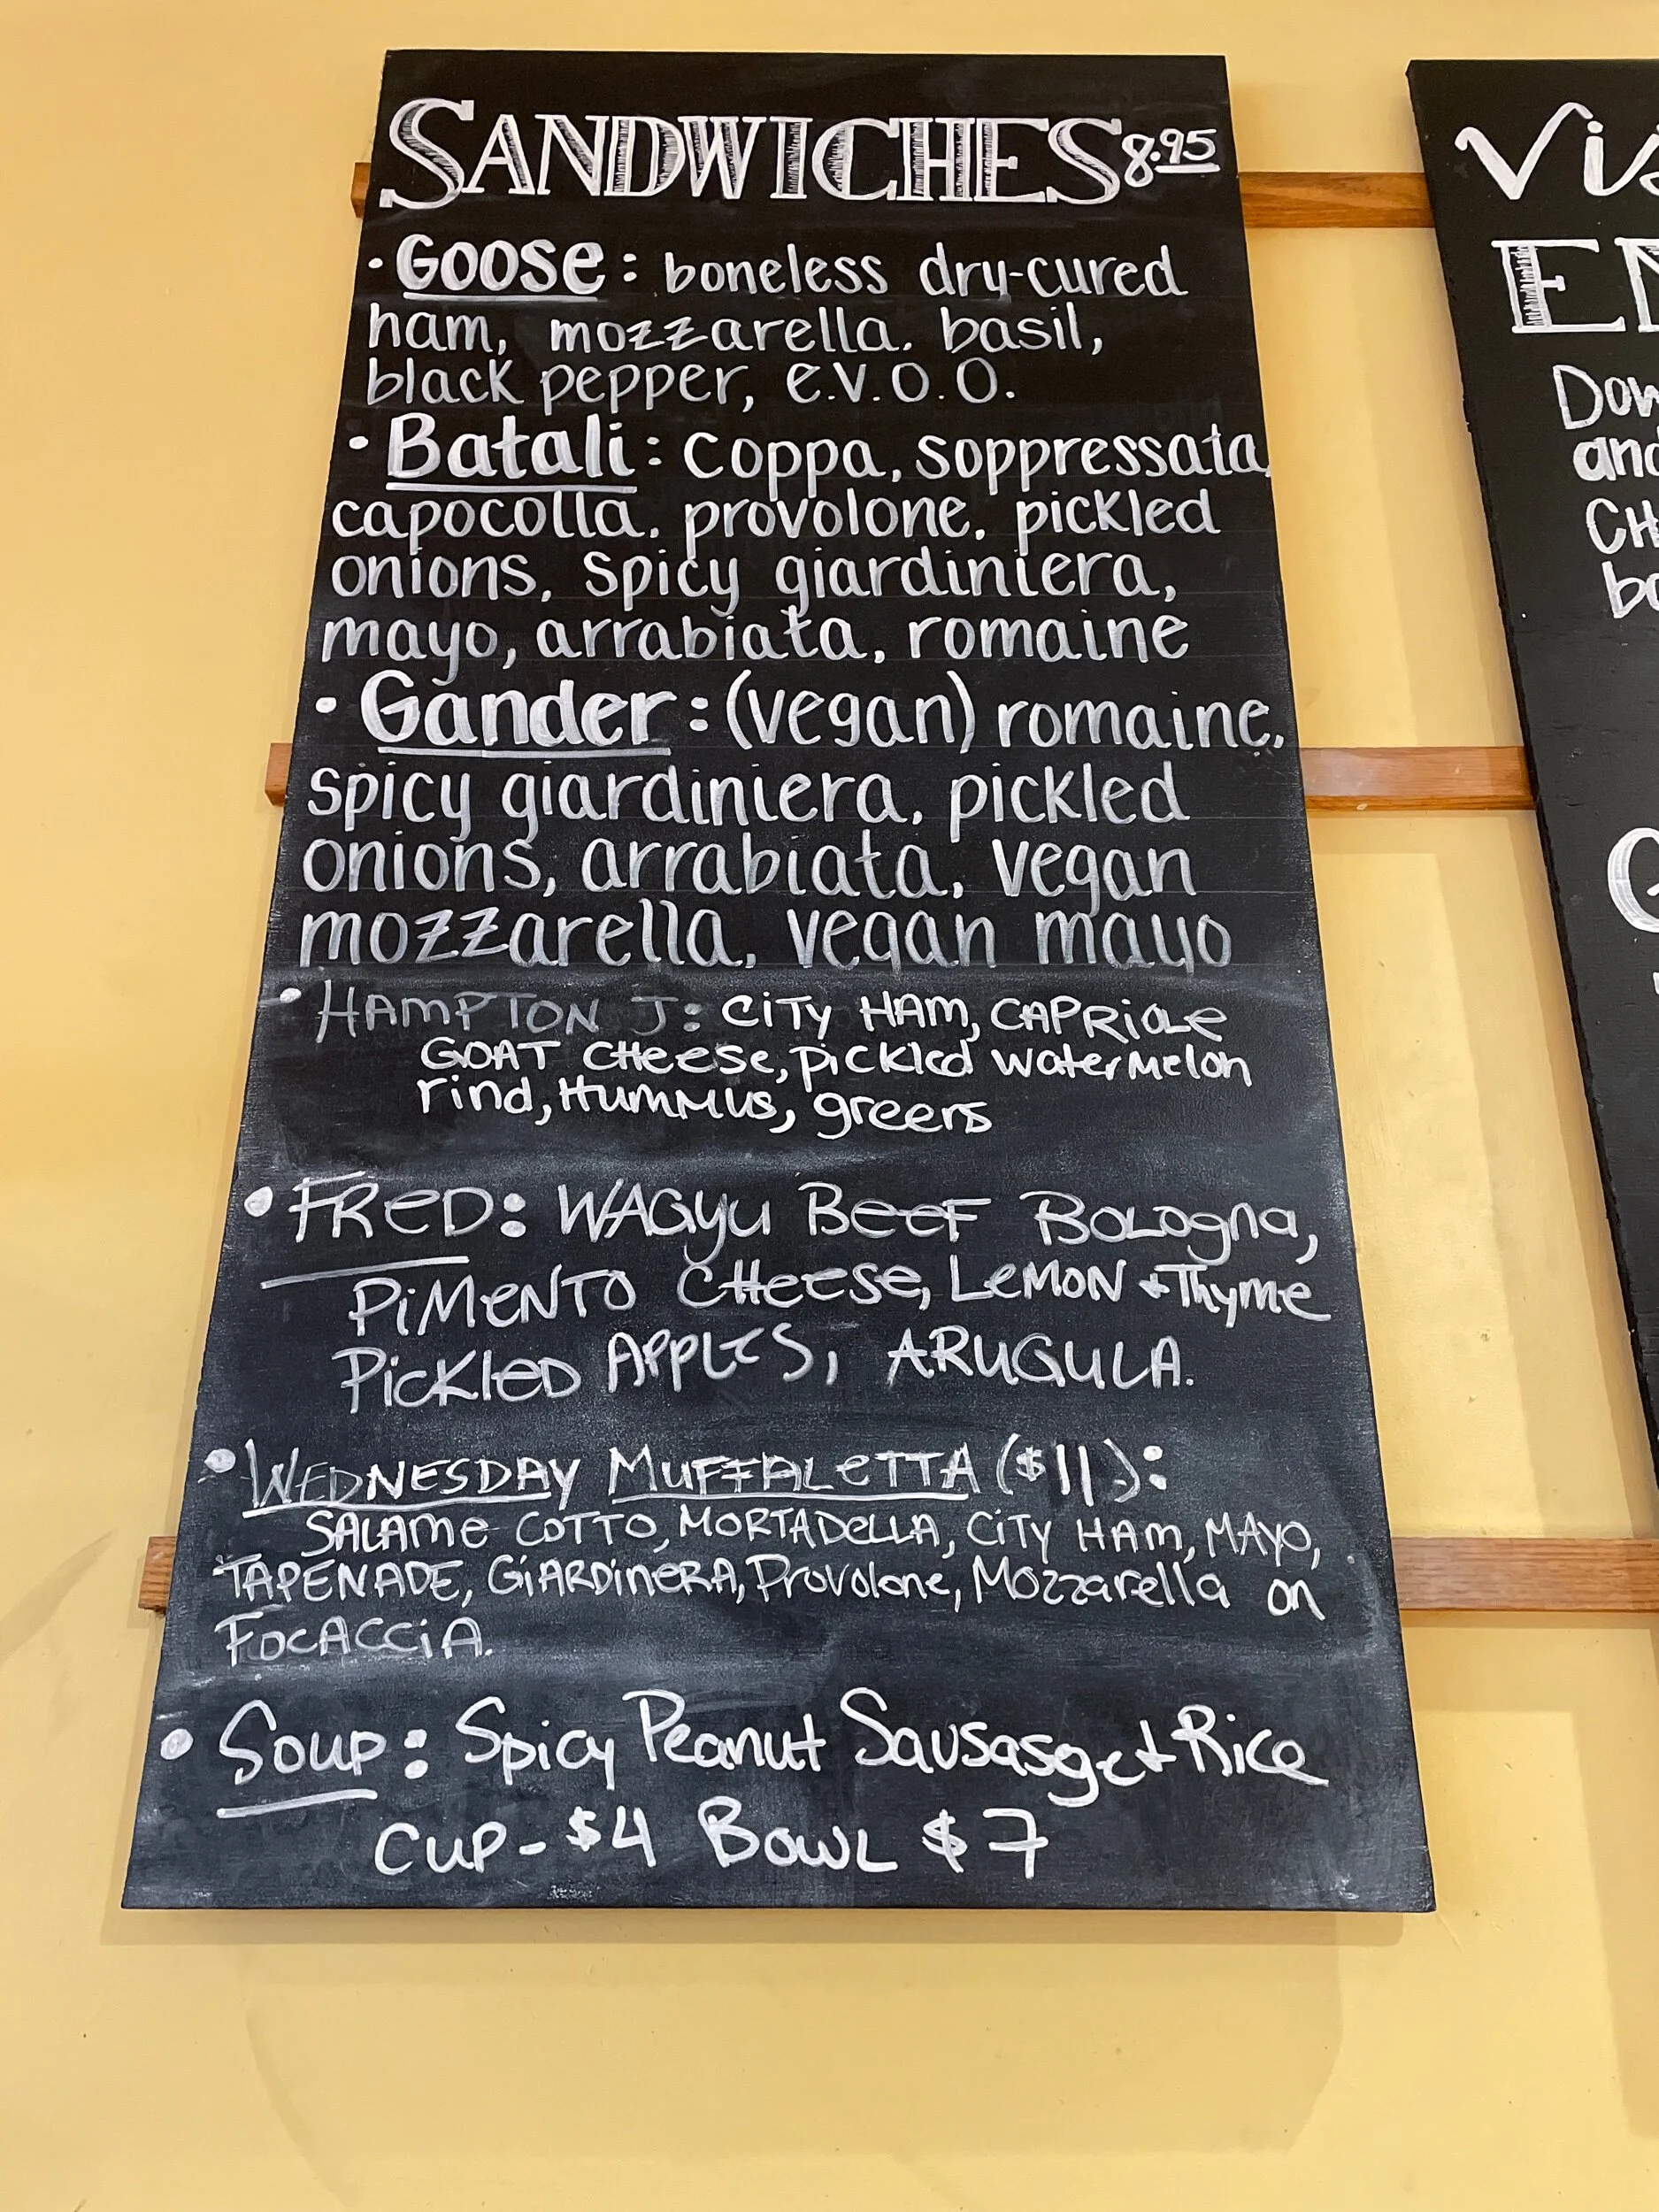 SANDWICHES 8.95
• GOOSE: boneless dry-cured
ham, mozzarella. basil,
black pepper, e.v.o.o.
• Batali: coppa, soppressata,
capocolla, provolone, pickled
onions, spicy giardiniera,
mayo, arrabiata, romaine
• Gander: (vegan) romaine,
spicy giardiniera, pickled
onions, arrabiata, vegan
mozzarella, vegan mayo
• HAMPTON J: CiTy HAM, CAPRiOLe
GOAT CHeeSe, pickled watermelon
rind, Hummus, greens
• FReD: WAGyu BeeF BoLogna,
PiMeNTO CHeeSe, LeMON + Thyme
PicKleD APPLeS, ARUGULA.
• WEDNESDAY MUFFALeTTA ($11):
SALAMe COTTO, MORTADeLLA, CiTY HAm, MAyo,
TAPENADE, GiARDineRA, Provolone, Mozzarella on
FOCACCiA.
• Soup: Spicy Peanut Sausasge + Rice
CUP - $4 BOWL $7
Dow
and
CH